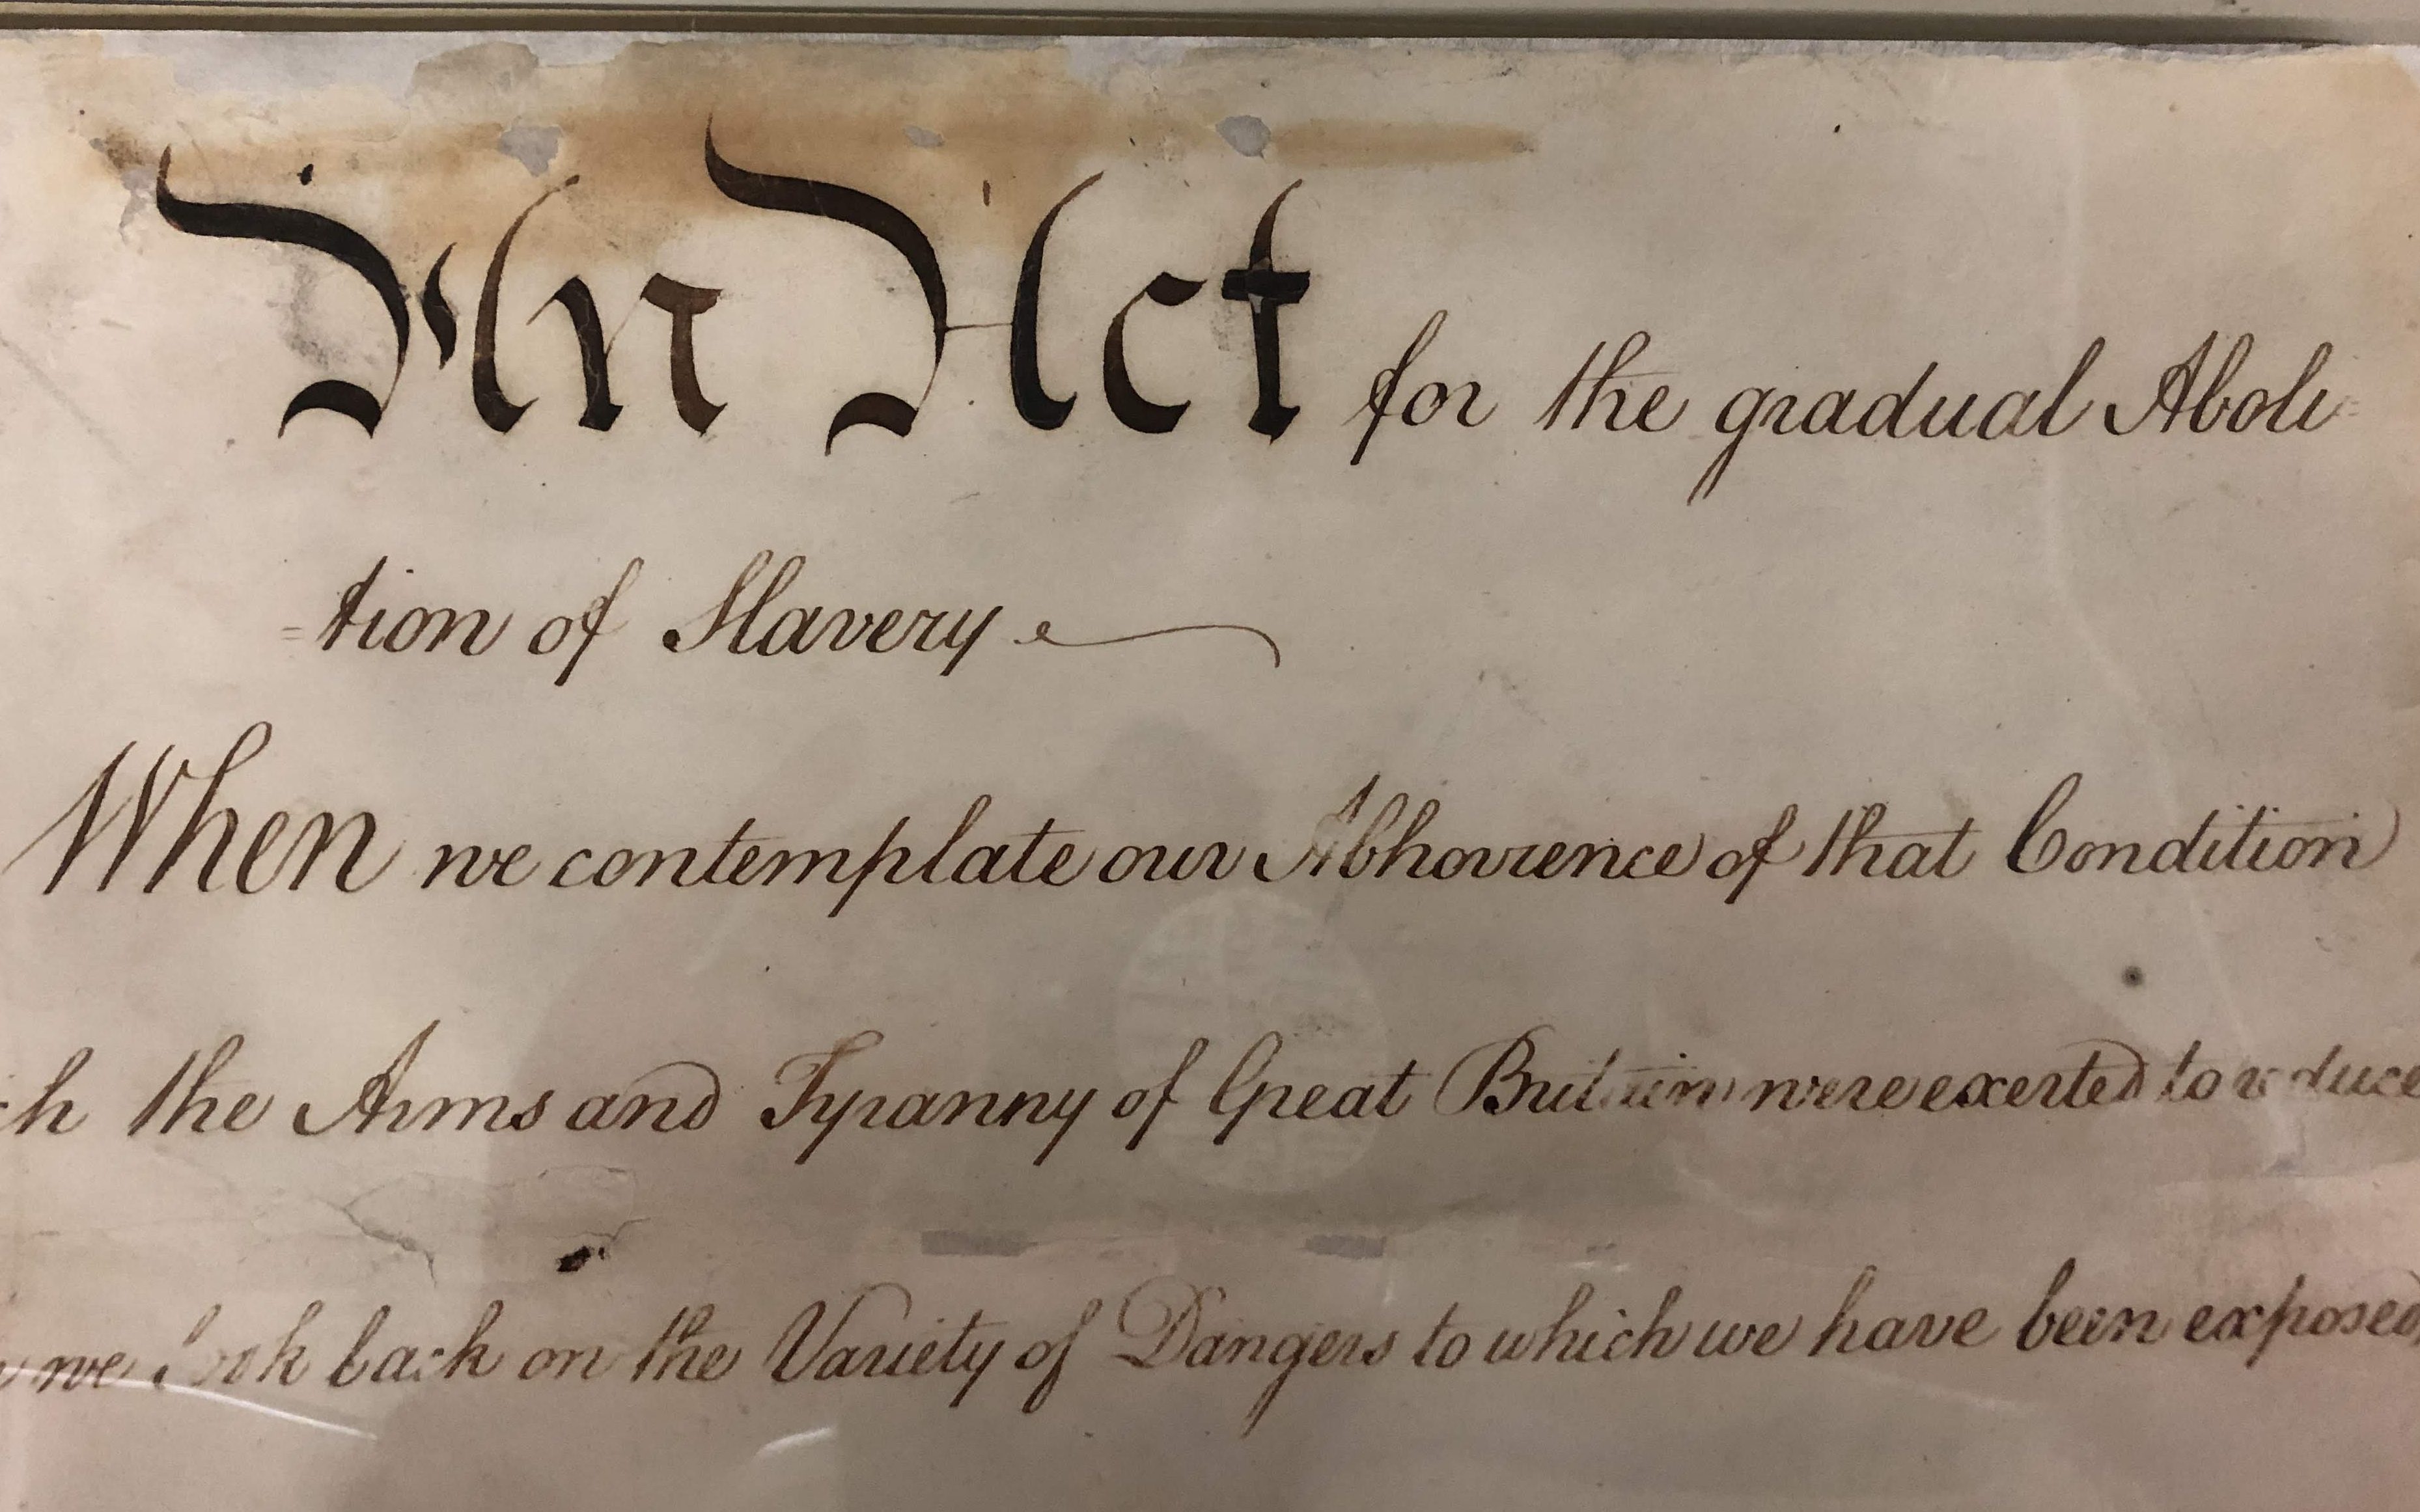 An Act for the gradual Aboli=
=tion of Slavery
When we contemplate our Abhorrence of that Condition
the Arms and Tyranny of Great Britain were exerted to reduce
we look back on the Variety of Dangers to which we have been exposed,